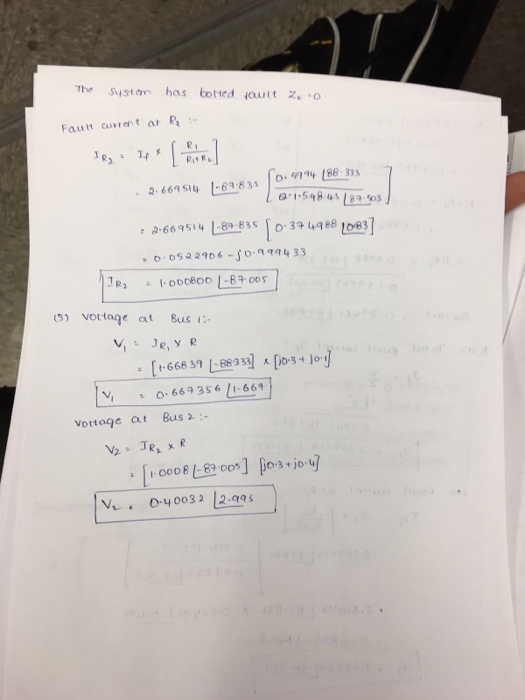 The system has bolted fault Zo = 0.
Fault current at R2 :-
IR2 = If × [R1 / R1+R2]
= 2.669514 ∠-87.835 [0.5994 ∠88.333 /
= 2.669514 ∠-87.835 [0.374988 ∠0.83]
= 0.0522906 - j0.999433
IR2 = 1.000800 ∠-87.005
(3) Voltage at Bus 1:-
V1 = IR1 × R
= [1.66839 ∠-88.333] × [j0.3 + j0.1]
V1 = 0.667356 ∠1.667
Voltage at Bus 2:-
V2 = IR2 × R
= [1.0008 ∠-87.005] [j0.3 + j0.4]
V2 = 0.40032 ∠2.995